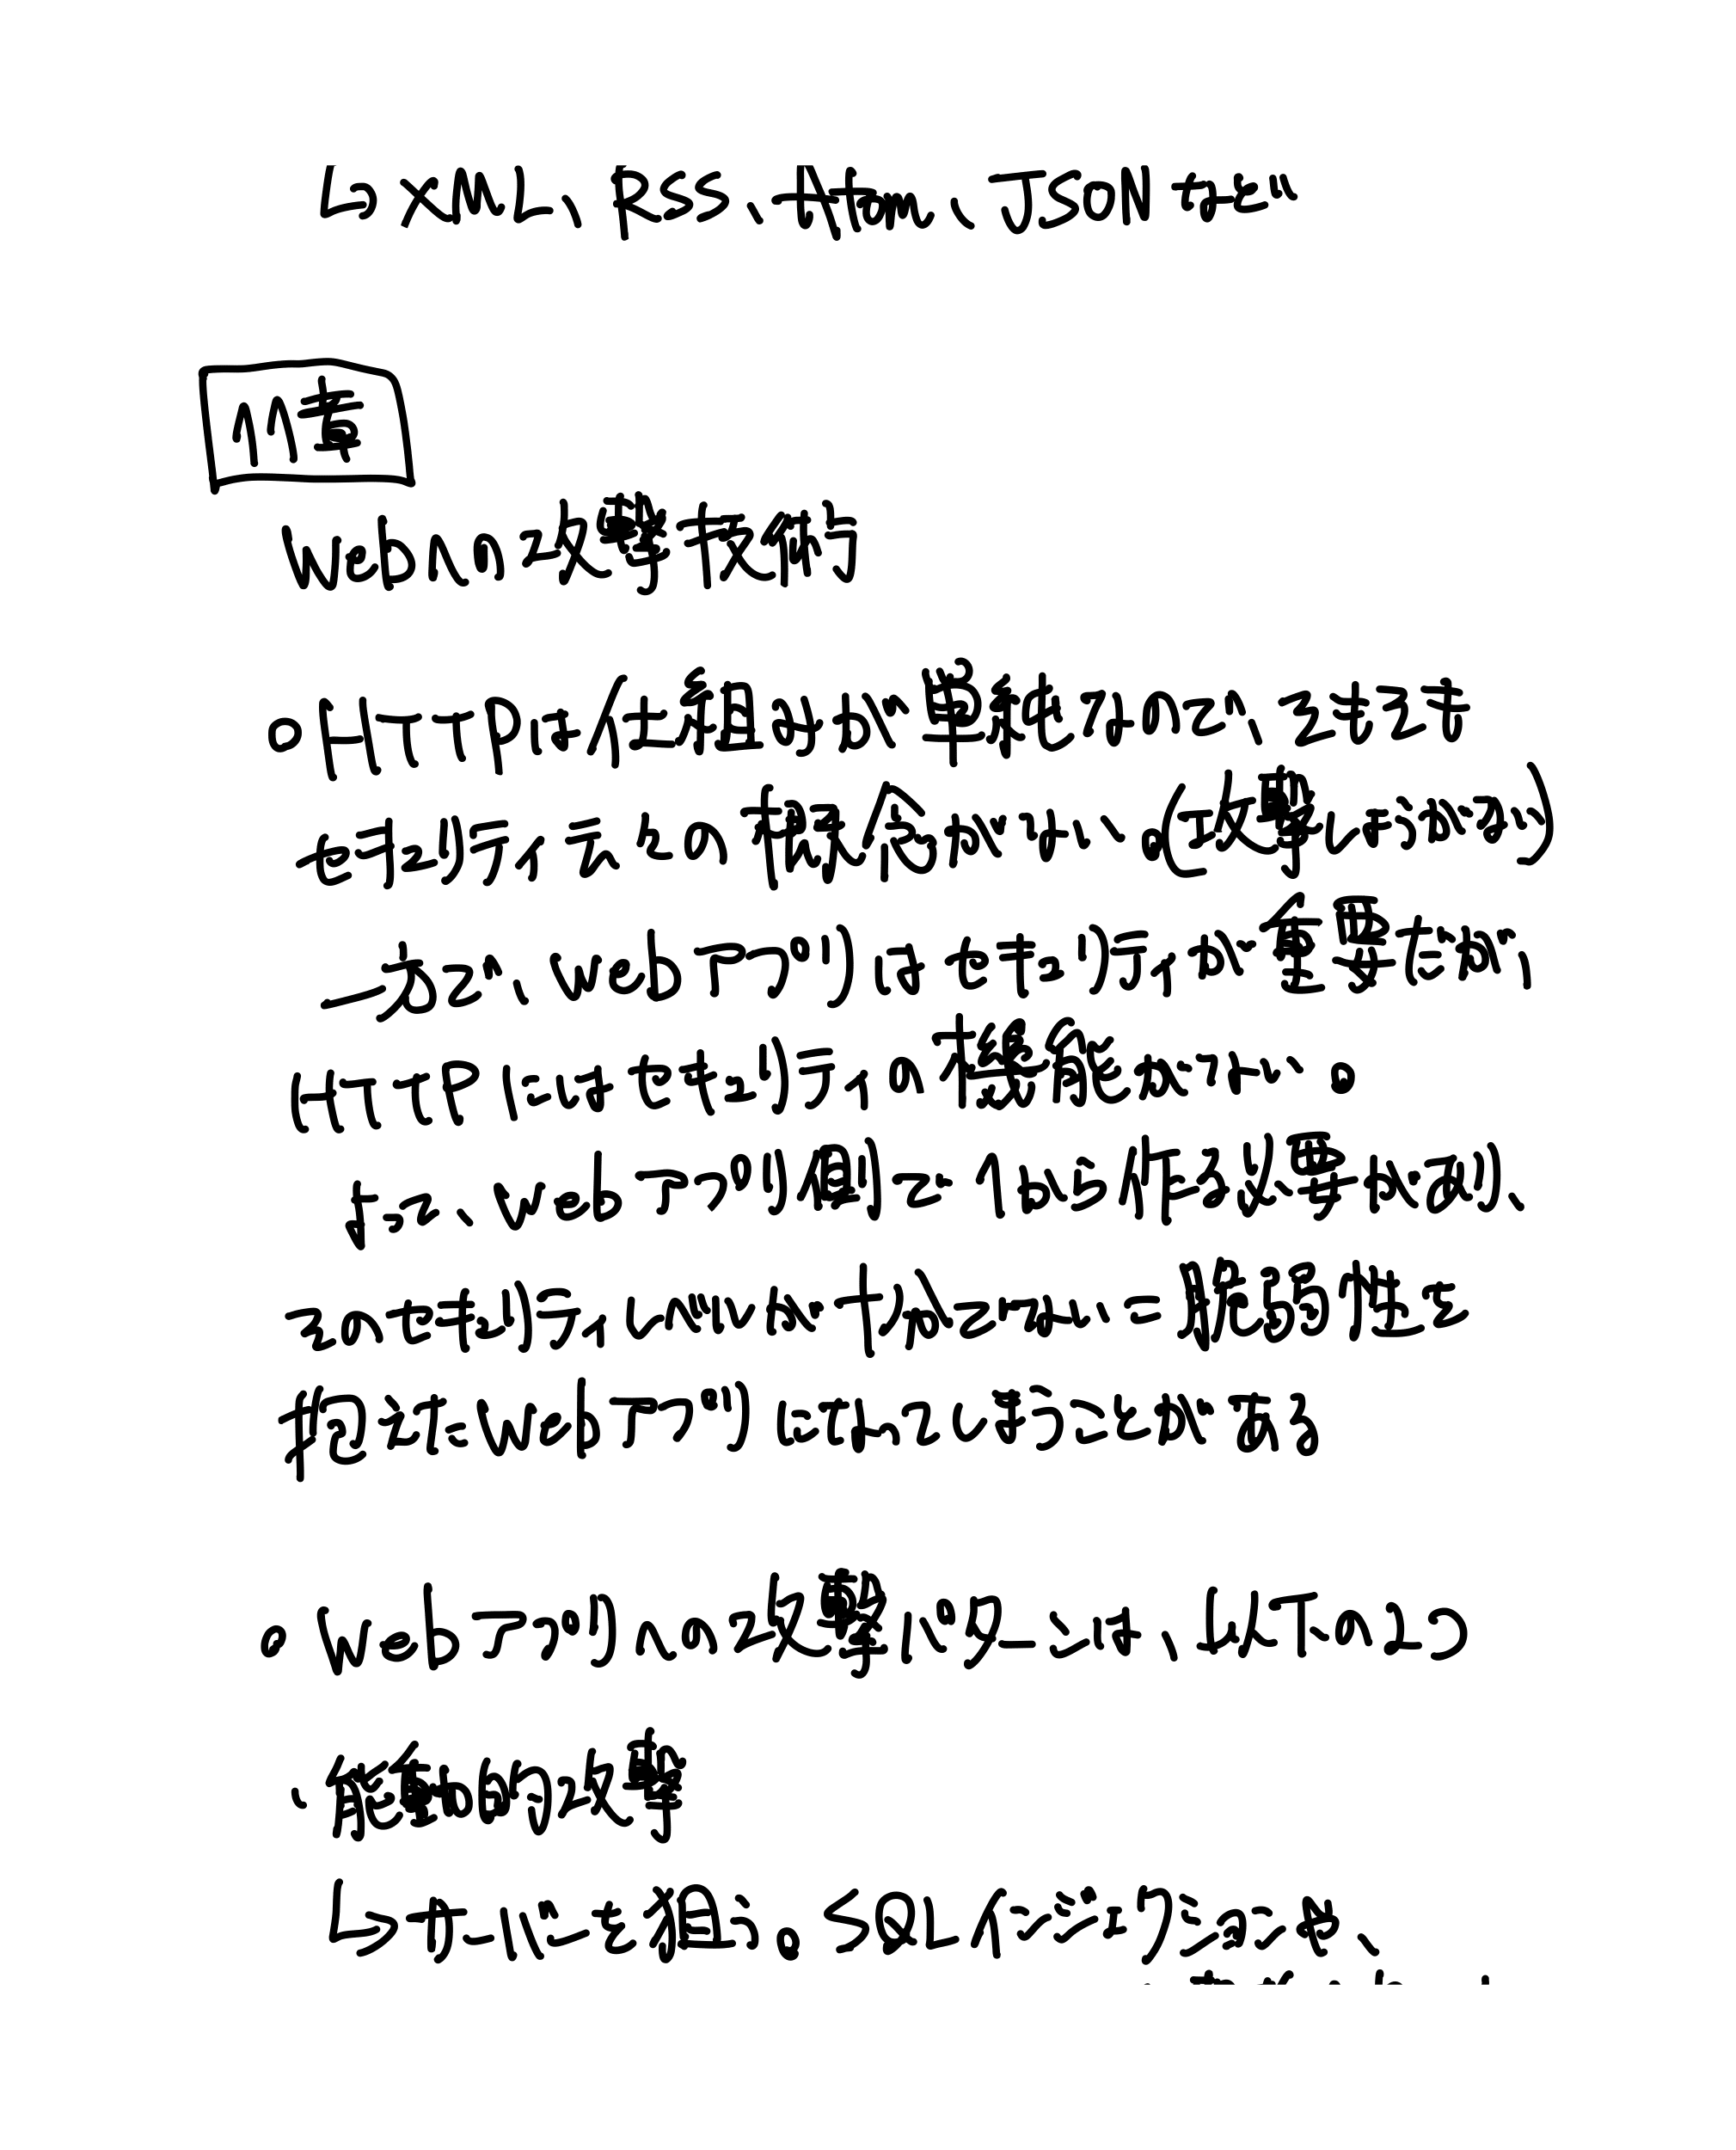 ↳ XML、RSS、Atom、JSONなど
11章
Webへの攻撃技術
○HTTPは仕組みが単純なので、そもそも
セキュリティ的な概念がない。(攻撃しようがない)
一方で、Webアプリはセキュリティが重要だが、
HTTPにはセキュリティの機能がない。
よって、Webアプリ側で1から作る必要があり、
そのセキュリティレベルが十分でない=脆弱性を
抱えたWebアプリになってしまうことがある
○ Webアプリへの攻撃パターンは、以下の2つ
・能動的攻撃
↳サーバを狙う。SQLインジェクションや、